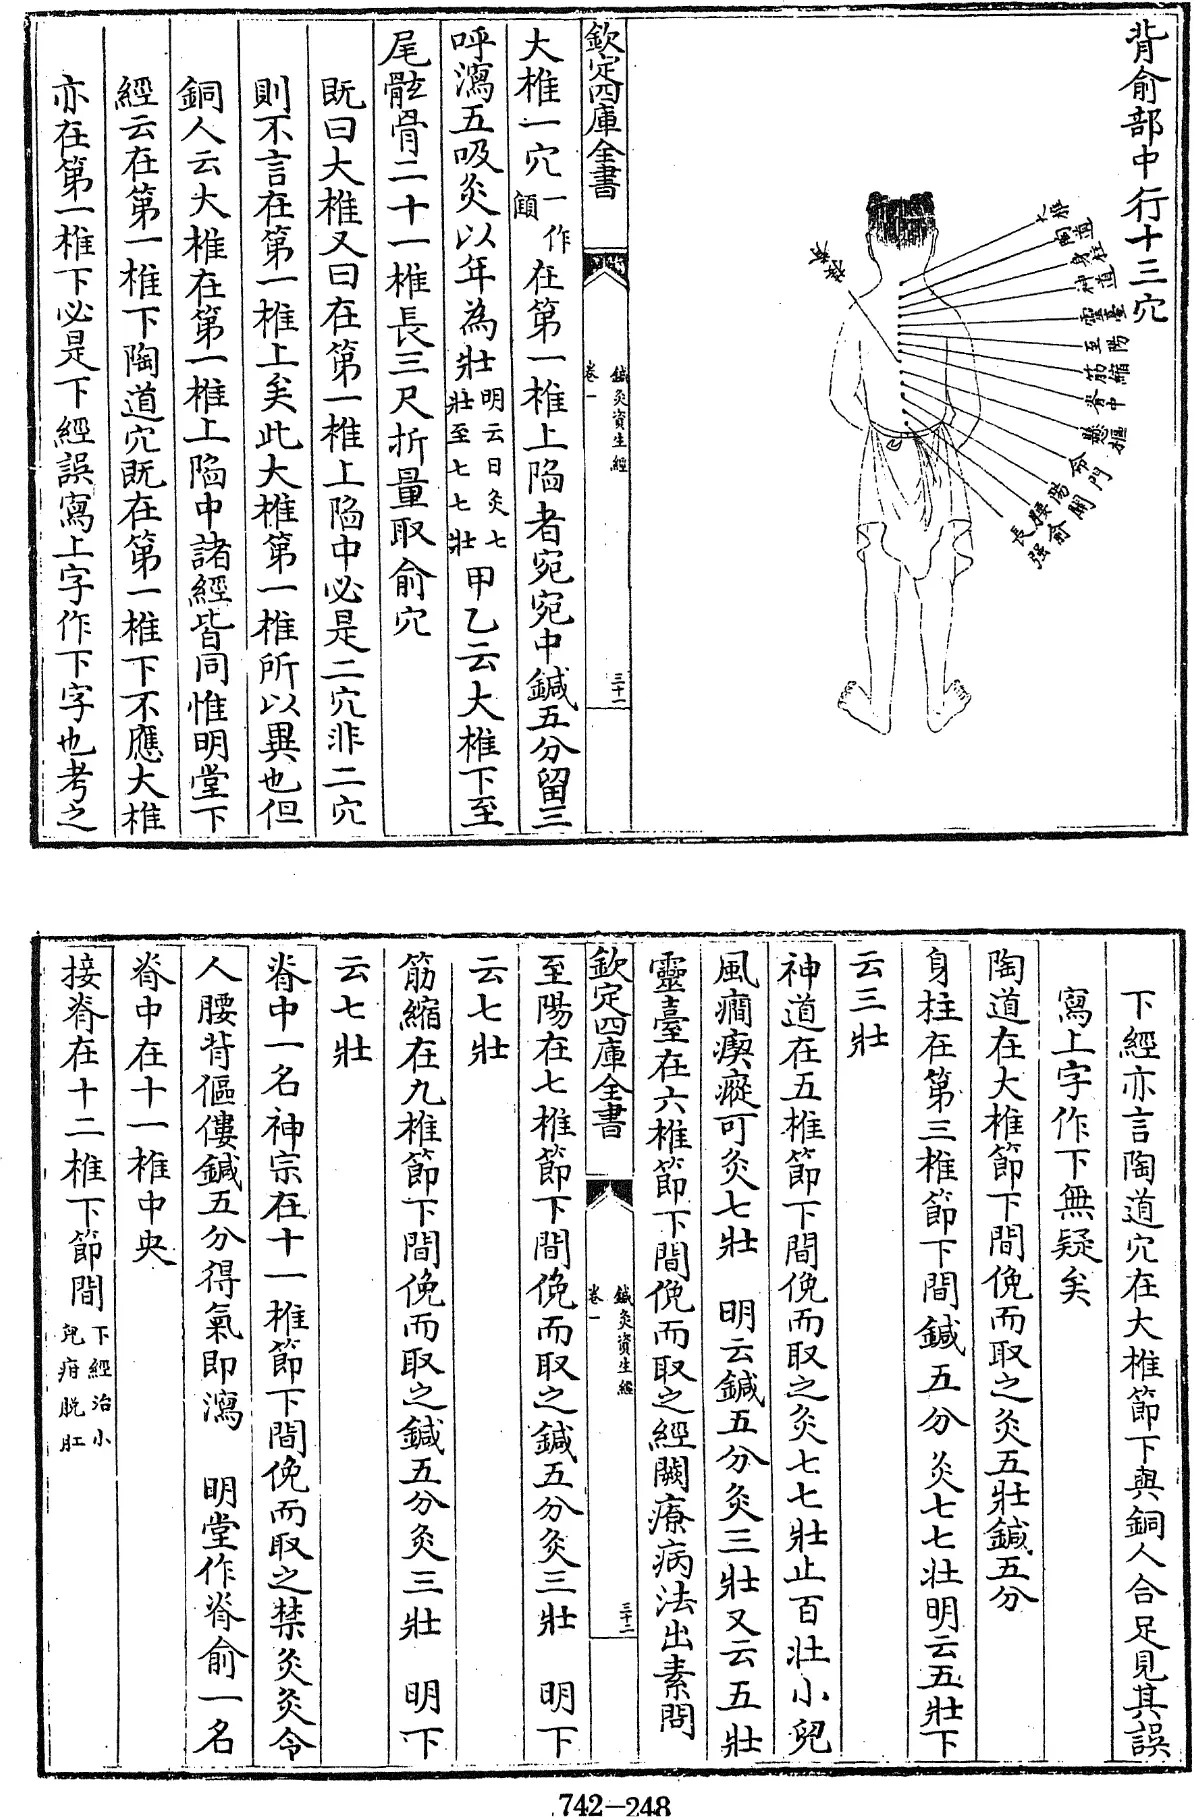 背俞部中行十三穴
大椎
陶道
身柱
神道
靈臺
至陽
筋縮
脊中
懸樞
命門
陽關
腰俞
長强
接脊
欽定四庫全書
鍼灸資生經
卷一
三十一
大椎一穴一作䫜在第一椎上陷者宛宛中鍼五分留三
呼瀉五吸灸以年為壯明云日灸七壯至七七壯甲乙云大椎下至
尾骶骨二十一椎長三尺折量取俞穴
既曰大椎又曰在第一椎上陷中必是二穴非二穴
則不言在第一椎上矣此大椎第一椎所以異也但
銅人云大椎在第一椎上陷中諸經皆同惟明堂下
經云在第一椎下陶道穴既在第一椎下不應大椎
亦在第一椎下必是下經誤寫上字作下字也考之
下經亦言陶道穴在大椎節下與銅人合足見其誤
寫上字作下無疑矣
陶道在大椎節下間俛而取之灸五壯鍼五分
身柱在第三椎節下間鍼五分灸七七壯明云五壯下
云三壯
神道在五椎節下間俛而取之灸七七壯止百壯小兒
風癇瘈瘲可灸七壯　明云鍼五分灸三壯又云五壯
靈臺在六椎節下間俛而取之經闕療病法出素問
欽定四庫全書
鍼灸資生經
卷一
三十二
至陽在七椎節下間俛而取之鍼五分灸三壯　明下
云七壯
筋縮在九椎節下間俛而取之鍼五分灸三壯　明下
云七壯
脊中一名神宗在十一椎節下間俛而取之禁灸灸令
人腰背傴僂鍼五分得氣即瀉　明堂作脊俞一名
脊中在十一椎中央
接脊在十二椎下節間下經治小兒疳脱肛
742-248